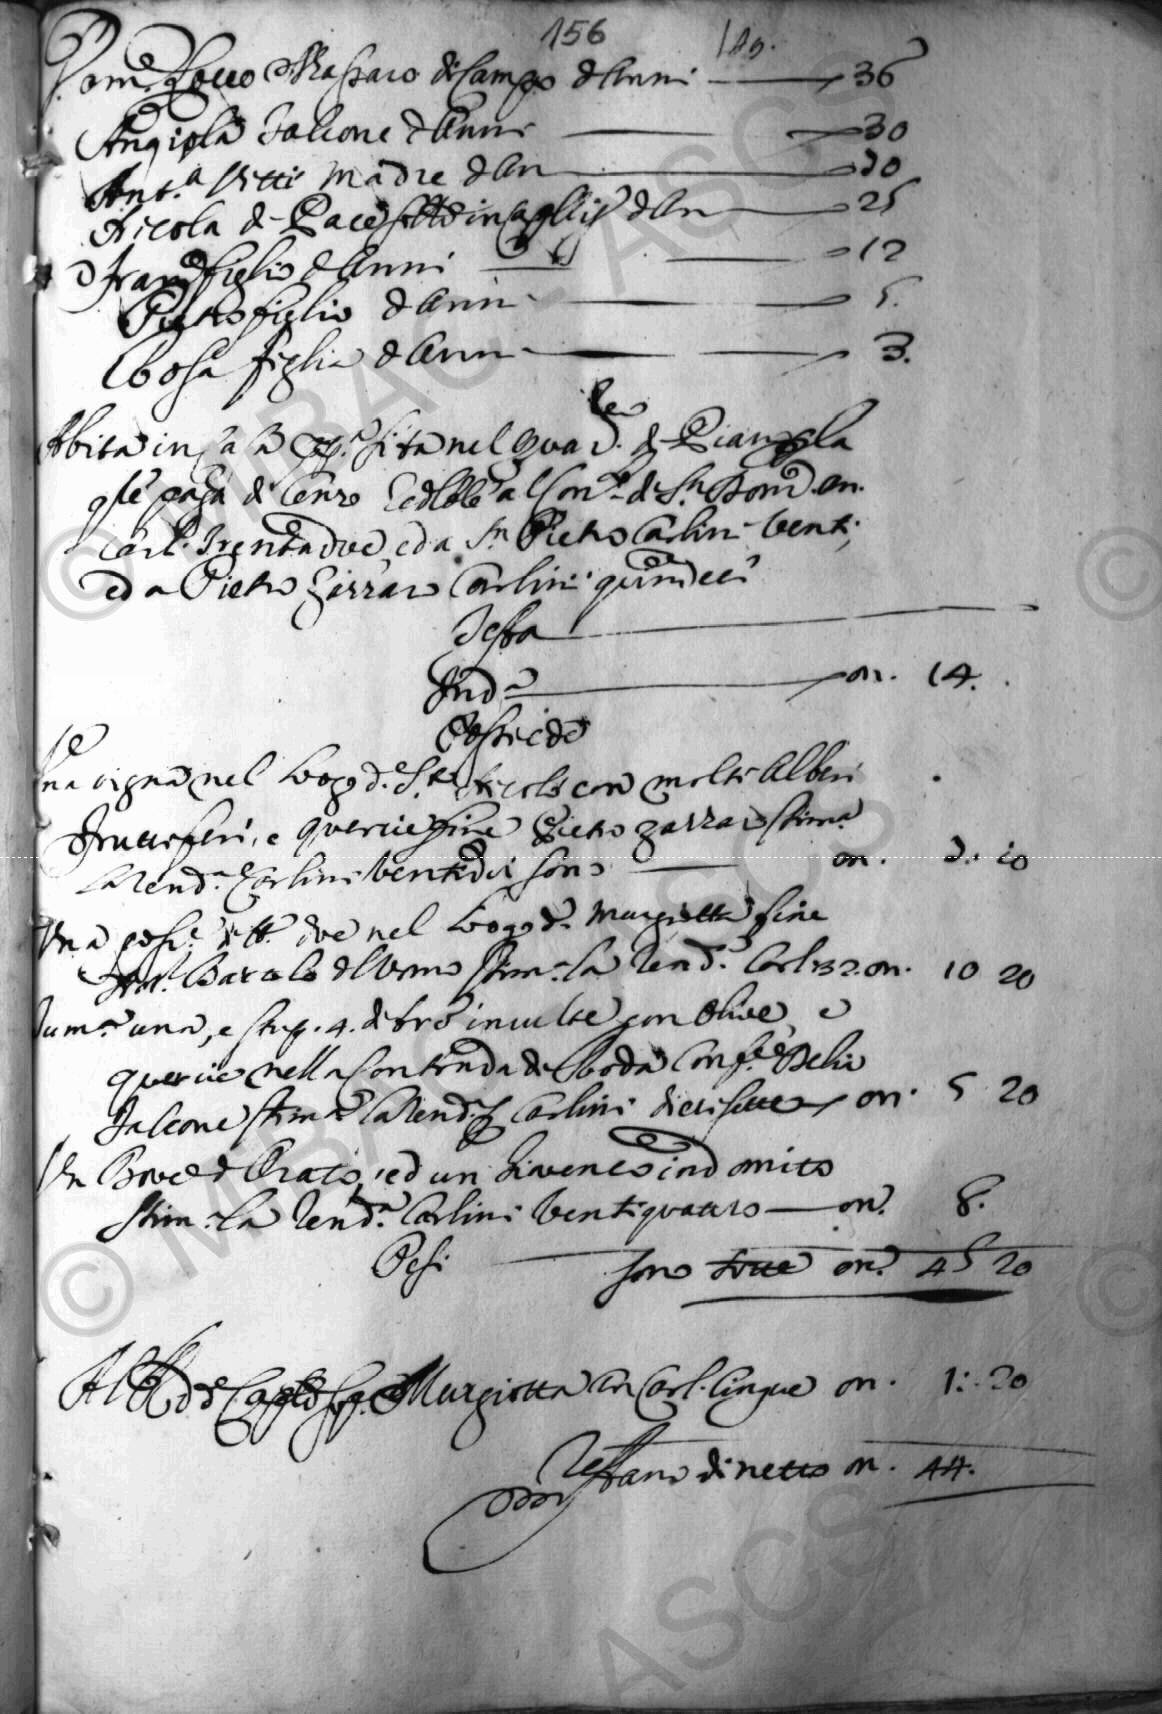 156
Dom.co Rocco Massaro di Campo d'Anni 36
Angiola Falcone d'Anni 30
Ant.a Vitti Madre d'An 70
Nicola di Pace d'An 25
Fran.co figlio d'Anni 12
Pietro figlio d'Anni 5.
Rosa figlia d'Anni 3.
Abita in casa pp.a sita nel quar. di Pianola
q.le paga di Censo al Con.to di S.n Dom.co an.
Carl. Trentadue, ed a S.n Pietro Carlini Venti,
ed a Pietro Zarraro Carlini quindeci
Testa
Ind.a on. 14.
Possiede
Una vigna nel Luogo d.o S.to Nicola con molti Alberi
Fruttiferi, e quercie fine Pietro Zarraro stim.a
la rend.a Carlini Ventidui sono on. 7. 10
Una poss.e di tt. due nel Luogo d.o Murgiotta fine
stim. la rend.a Carl. 32. on. 10 20
Tum.a una, e stup. 4. di trê inculte con Olive, e
quercie nella Contrada di Roda conf.e Delio
Falcone stim.a la rend.a Carlini diecisette on. 5 20
Un Bove d'Arato, ed un Giovenco indomito
stim. la rend.a Carlini Ventiquattro on. 8.
Pesi sono tutte on. 45 20
Murgiotta an. Carl. cinque on. 1: 20
Restano di netto on. 44.